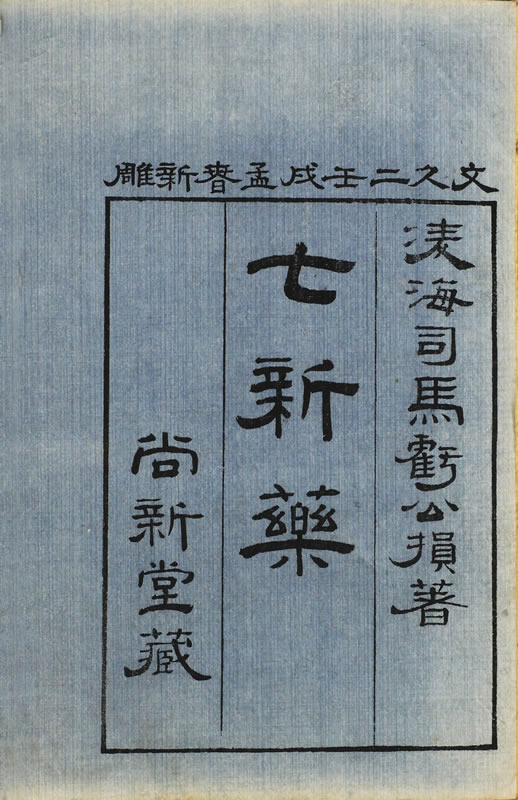 文久二壬戌孟春新雕
淩海司馬虧公損著
七新藥
尚新堂藏